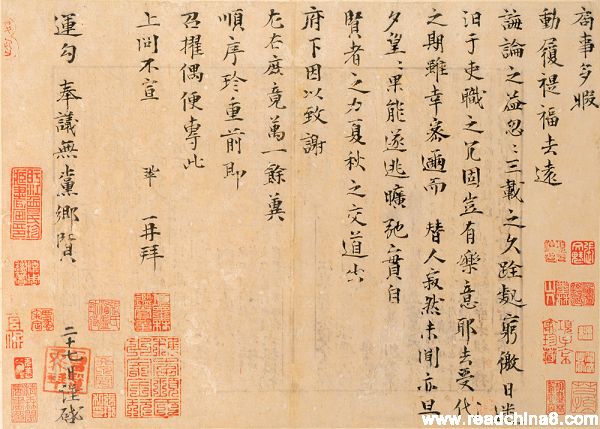 局事多暇
動履禔福去遠
誨論之益忽〻三載之久跧處窮徼日迷
汨于吏職之冗固豈有樂意耶去受代
之期雖幸密邇而替人寂然未聞亦旦
夕望〻果能遂逃曠弛實自
賢者之力夏秋之交道出
府下因以致謝
左右庶竟萬一餘冀
順序珍重前即
召擢偶便專此
上問不宣 鞏 再拜
運勾奉議無黨鄉賢
二十七日謹啟
www.readchina8.com